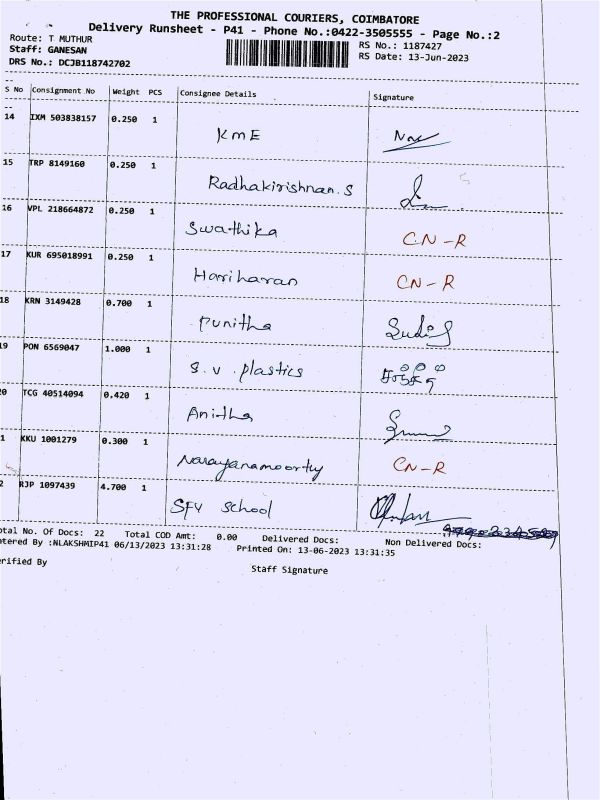 THE PROFESSIONAL COURIERS, COIMBATORE
Delivery Runsheet - P41 - Phone No.:0422-3505555 - Page No.:2
Route: T MUTHUR
RS No.: 1187427
Staff: GANESAN
RS Date: 13-Jun-2023
DRS No.: DCJB118742702
S No Consignment No Weight PCS Consignee Details Signature
14 IXM 503838157 0.250 1
KmE
15 TRP 8149160 0.250 1
Radhakirishnan.S
16 VPL 218664872 0.250 1
Swathika CN-R
17 KUR 695018991 0.250 1
Hariharan CN-R
18 KRN 3149428 0.700 1
Punitha
19 PON 6569047 1.000 1
S.V.plastics
20 TCG 40514094 0.420 1
Anitha
1 KKU 1001279 0.300 1
Narayanamoorthy CN-R
2 RJP 1097439 4.700 1
SFV School
otal No. Of Docs: 22 Total COD Amt: 0.00 Delivered Docs: Non Delivered Docs:
ntered By :NLAKSHMIP41 06/13/2023 13:31:28 Printed On: 13-06-2023 13:31:35
erified By
Staff Signature